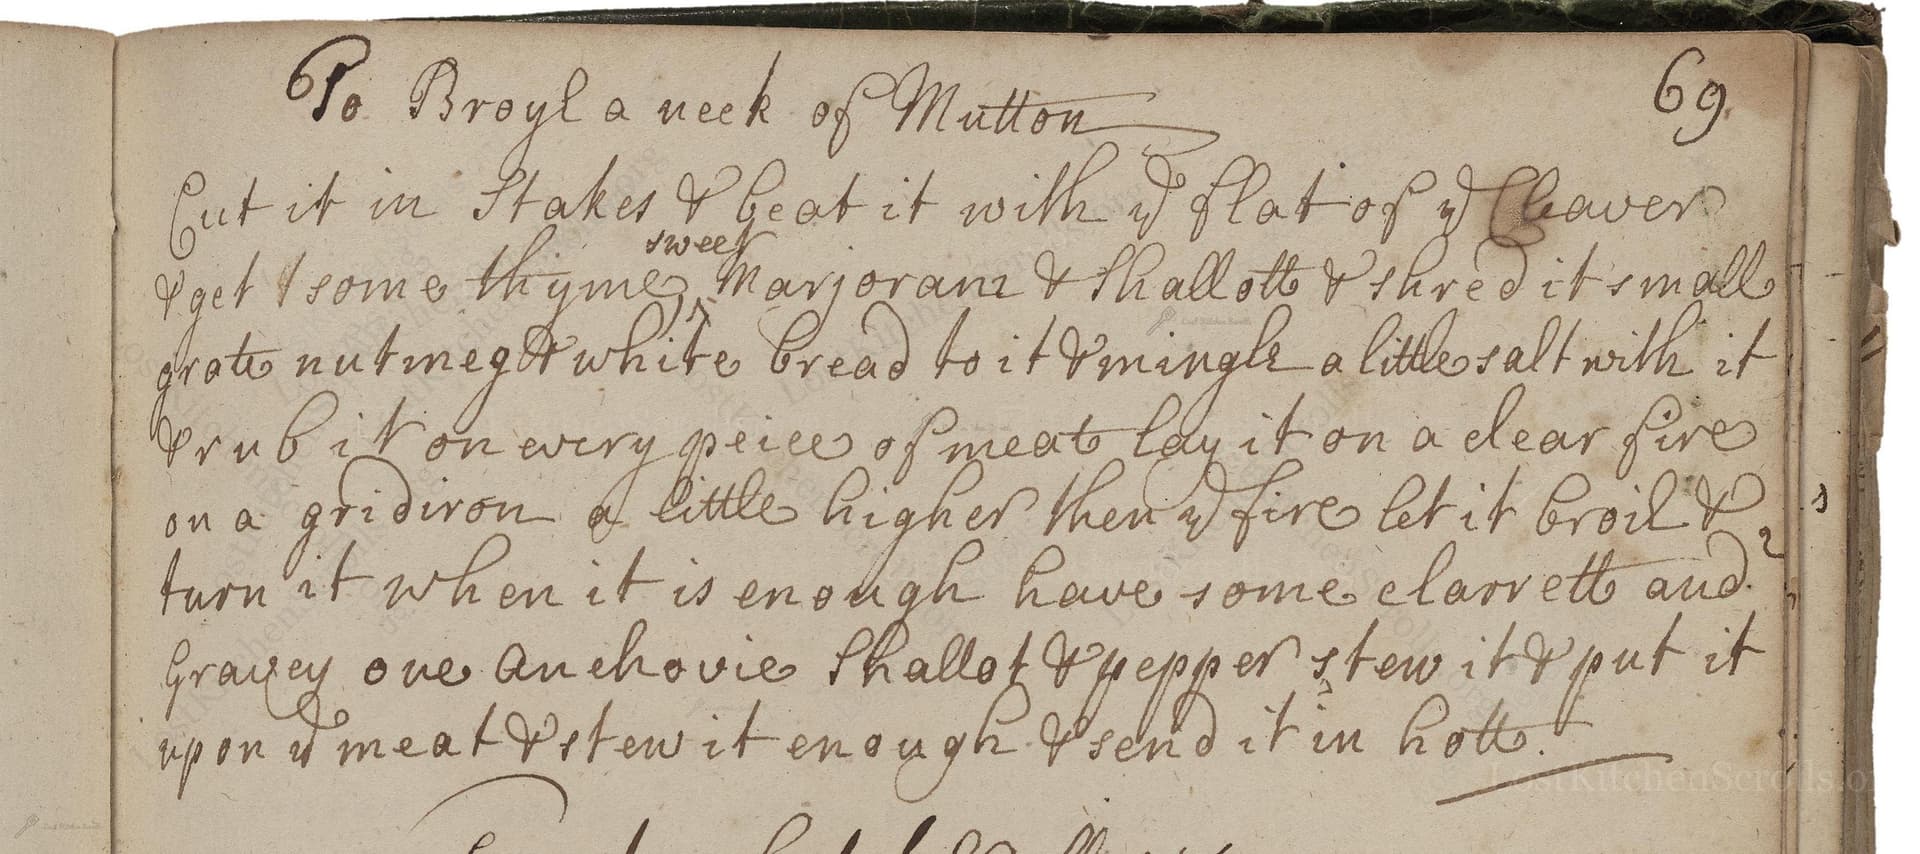 To Broyl a neck of Mutton 69
Cut it in Stakes & beat it with ye flat of ye Cleaver
& get some thyme, sweet Marjoram & Shallott & shred it small
grate nutmeg & white bread to it & mingle a little salt with it
& rub it on every peice of meat lay it on a clear fire
on a gridiron a little higher then ye fire let it broil &
turn it when it is enough have some clarrett and
Gravey one Anchovie Shallot & pepper stew it & put it
upon ye meat & stew it enough & send it in hott.
LostKitchenScrolls.o